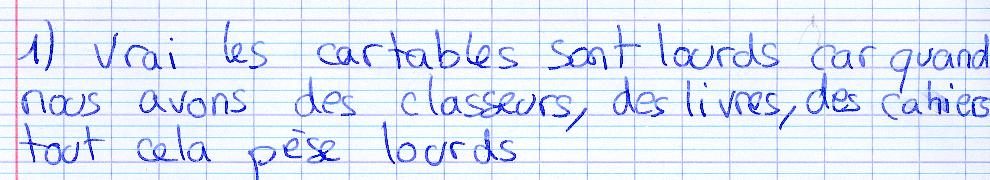 1) Vrai les cartables sont lourds car quand
nous avons des classeurs, des livres, des cahiers
tout cela pèse lourds